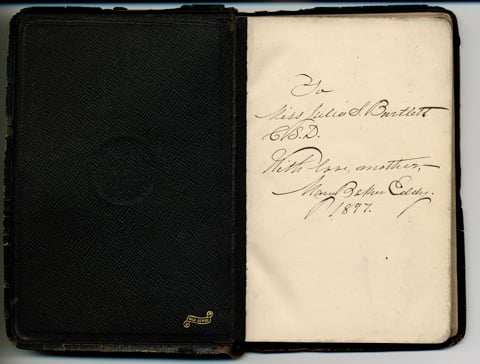 To
Miss Julia S. Bartlett
C.S.D.
With love, mother,
Mary Baker Eddy.
1897.